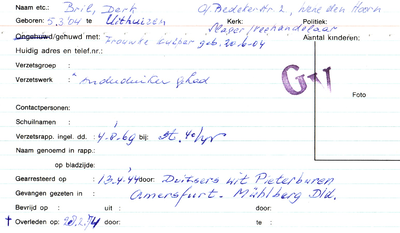 Naam etc.: Bril, Derk
Geboren: 5.3.04 te Uithuizen Kerk: Politiek:
Slager/veehandelaar
Ongehuwd/gehuwd met: Trouwtje Luiser geb. 20.6.04 Aantal kinderen:
Huidig adres en telef.nr.:
Verzetsgroep :
Verzetswerk : onderduiker gehad
GV
Foto
Contactpersonen:
Schuilnaam :
Verzetsrapp. ingel. dd. : 4.8.69 bij: St. 40/45
Naam genoemd in rapp.:
op bladzijde:
Gearresteerd op : 13.4.44 door: Duitsers uit Pieterburen
Gevangen gezeten in : Amersfurt. Mühlberg Dld.
Bevrijd op : uit : door:
† Overleden op: 28.2.74 door: te :